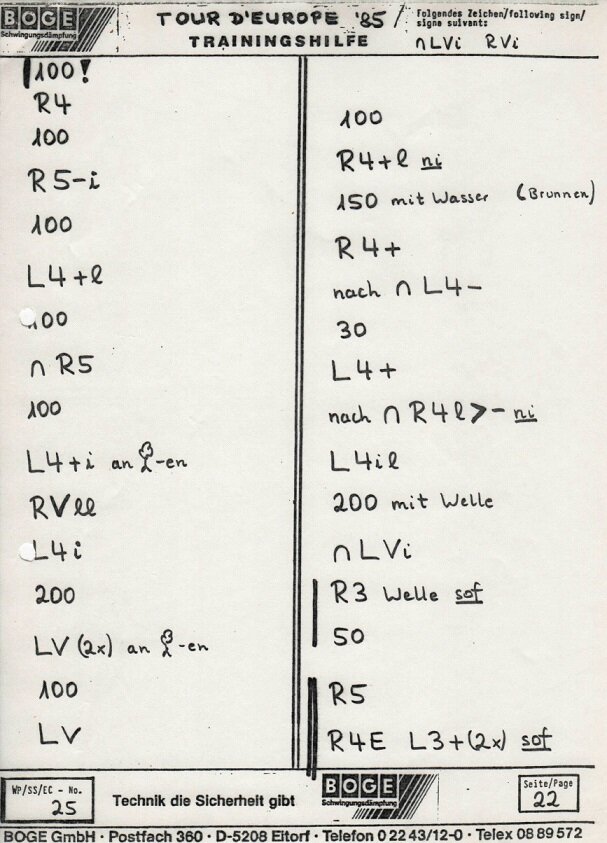 BOGE
Schwingungsdämpfung
TOUR D'EUROPE '85
TRAININGSHILFE
Folgendes Zeichen/following sign/
signe suivants
∩ LVi RVi
100!
R4
100
R5-i
100
L4+l
100
∩ R5
100
L4+i an -en
RVll
L4i
200
LV (2x) an -en
100
LV
100
R4+l ni
150 mit Wasser (Brunnen)
R4+
nach ∩ L4-
30
L4+
nach ∩ R4l>- ni
L4il
200 mit Welle
∩ LVi
R3 Welle sof
50
R5
R4E L3+(2x) sof
WP/SS/EC - No.
25
Technik die Sicherheit gibt
BOGE
Schwingungsdämpfung
Seite/Page
22
BOGE GmbH · Postfach 360 · D-5208 Eitorf · Telefon 0 22 43/12-0 · Telex 08 89 572